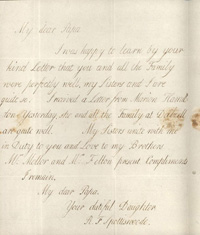 My dear Papa
I was happy to learn by your
kind Letter that you and all the Family
were perfectly well, my Sisters and I are
quite so. I received a Letter from Miriam Hamil
ton Yesterday, she and all the Family at
are quite well. My Sisters unite with me
in Duty to you and Love to my Brothers.
Mrs. Mellor and Mrs. Felton present Compliments
I remain,
My dear Papa,
Your dutiful Daughter
R. F. Spottiswoode.